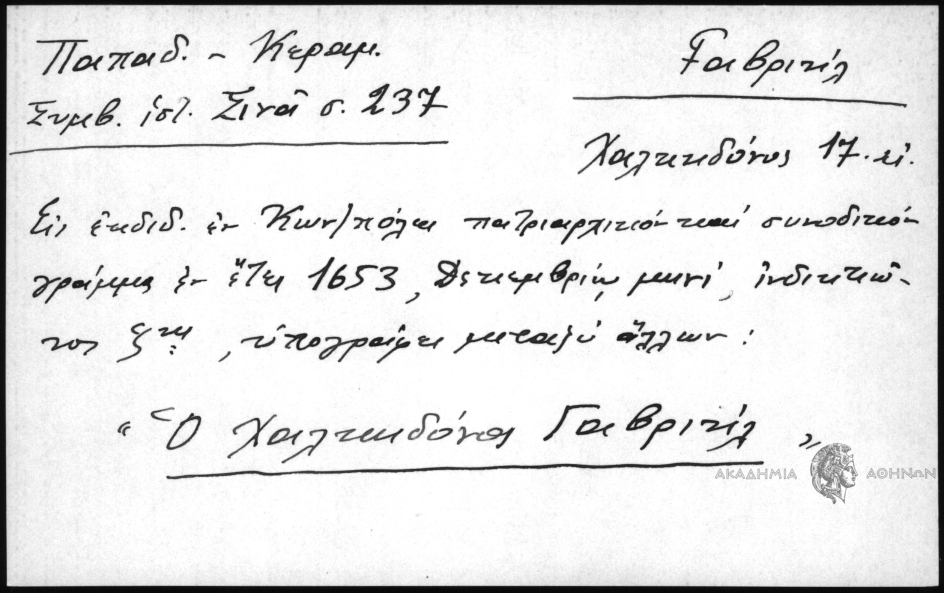 Παπαδ. - Κεραμ.
Γαβριήλ
Συμβ. ἱστ. Σινᾶ σ. 237
Χαλκηδόνος 17. αἰ.
Εἰς ἐκδιδ. ἐν Κων/πόλει πατριαρχικόν καί συνοδικόν
γράμμα ἐν ἔτει 1653, Δεκεμβρίῳ μηνί, ἰνδικτιῶ-
νος ζης, ὑπογράφει μεταξύ ἄλλων:
“Ὁ Χαλκηδόνος Γαβριήλ„
ΑΚΑΔΗΜΙΑ ΑΘΗΝΩΝ